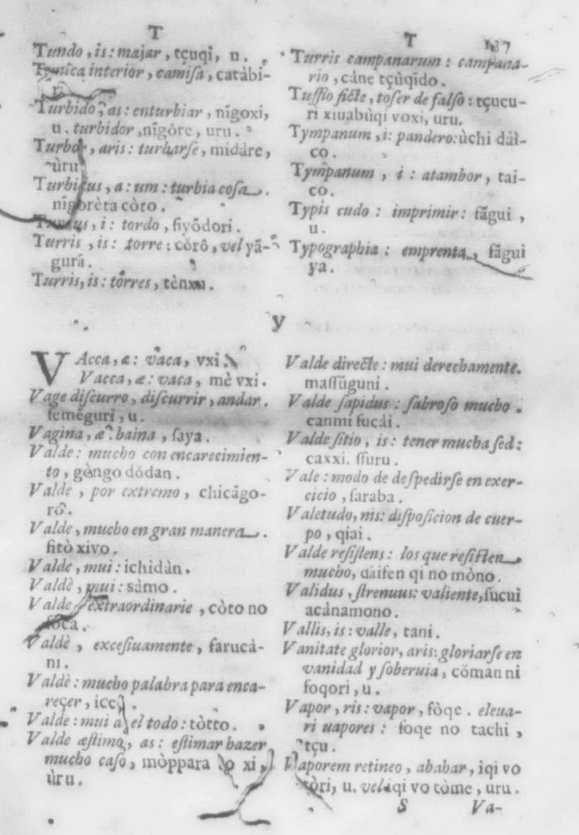 T
Tundo, is: majar, tçuqi, u.
Tunica interior, camisa, catàbi-
Turbido, as: enturbiar, nĩgoxi,
u. turbidor, nĩgòre, uru.
Turbor, aris: turbarse, midáre,
ùru
Turbidus, a: um: turbia cosa.
nĩgorèta còto.
Turdus, i: tordo, ſiyõdori.
Turris, is: torre: còrŏ, vel yã-
gurà.
Turris, is: torres, tènxu.
T 137
Turris campanarum: campana-
rio, càne tçùqĩdo.
Tuſſio ficte, toſer de falſo: tçucu-
ri xiuabùqi voxi, uru.
Tympanum, i: pandero: ùchi dăi-
co.
Tympanum, i: atambor, tai-
co.
Typis cudo: imprimir: fãgui,
u.
Typographia: emprenta, fãgui
ya.
y
VAcca, æ: vaca, vxi.
Vacca, æ: vaca, mè vxi.
Vage diſcurro, diſcurrir, andar.
femẽguri, u.
Vagina, æ: baina, ſaya.
Valde: mucho con encarecimien-
to, gòngo dŏdan.
Valde, por extremo, chicăgo-
rŏ.
Valde, mucho en gran manera.
fitò xivo.
Valde, mui: ichidàn.
Valdè, mui: sàmo.
Valde extraordinarie, còto no
Valdè, exceſiuamente, farucà-
ni.
Valdè: mucho palabra para enca-
reçer,
Valde: mui a el todo: tòtto.
Valde æſtimo, as: eſtimar hazer
mucho caſo, mòppara to xi,
ùru.
Valde directe: mui derechamente.
maſſũguni.
Valde ſapidus: ſabroſo mucho.
canmi fucái.
Valde ſitio, is: tener mucha ſed:
caxxi. ſſuru.
Vale: modo de deſpedirſe en exer-
cicio, ſaraba.
Valetudo, nis: diſpoſicion de cuer-
po, qiai.
Valde reſiſtens: los que reſiſten
mucho, daifen qi no mòno.
Validus, ſtrenuus: valiente, ſucui
acànamono.
Vallis, is: valle, tani.
Vanitate glorior, aris: gloriarſe en
vanidad y ſoberuia, cŏman ni
foqori, u.
Vapor, ris: vapor, fòqe. eleua-
ri uapores: foqe no tachi,
tçu.
Vaporem retineo, ababar, iqi vo
tòri, u. vel iqi vo tòme, uru.
S Va-